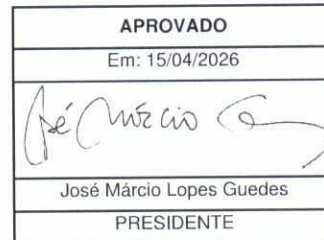 APROVADO
Em: 15/04/2026
José Márcio Lopes Guedes
PRESIDENTE